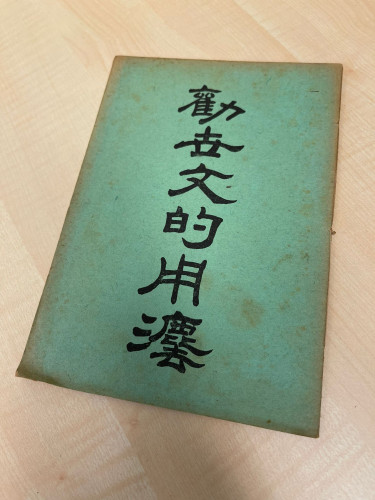 勸世文的用灋